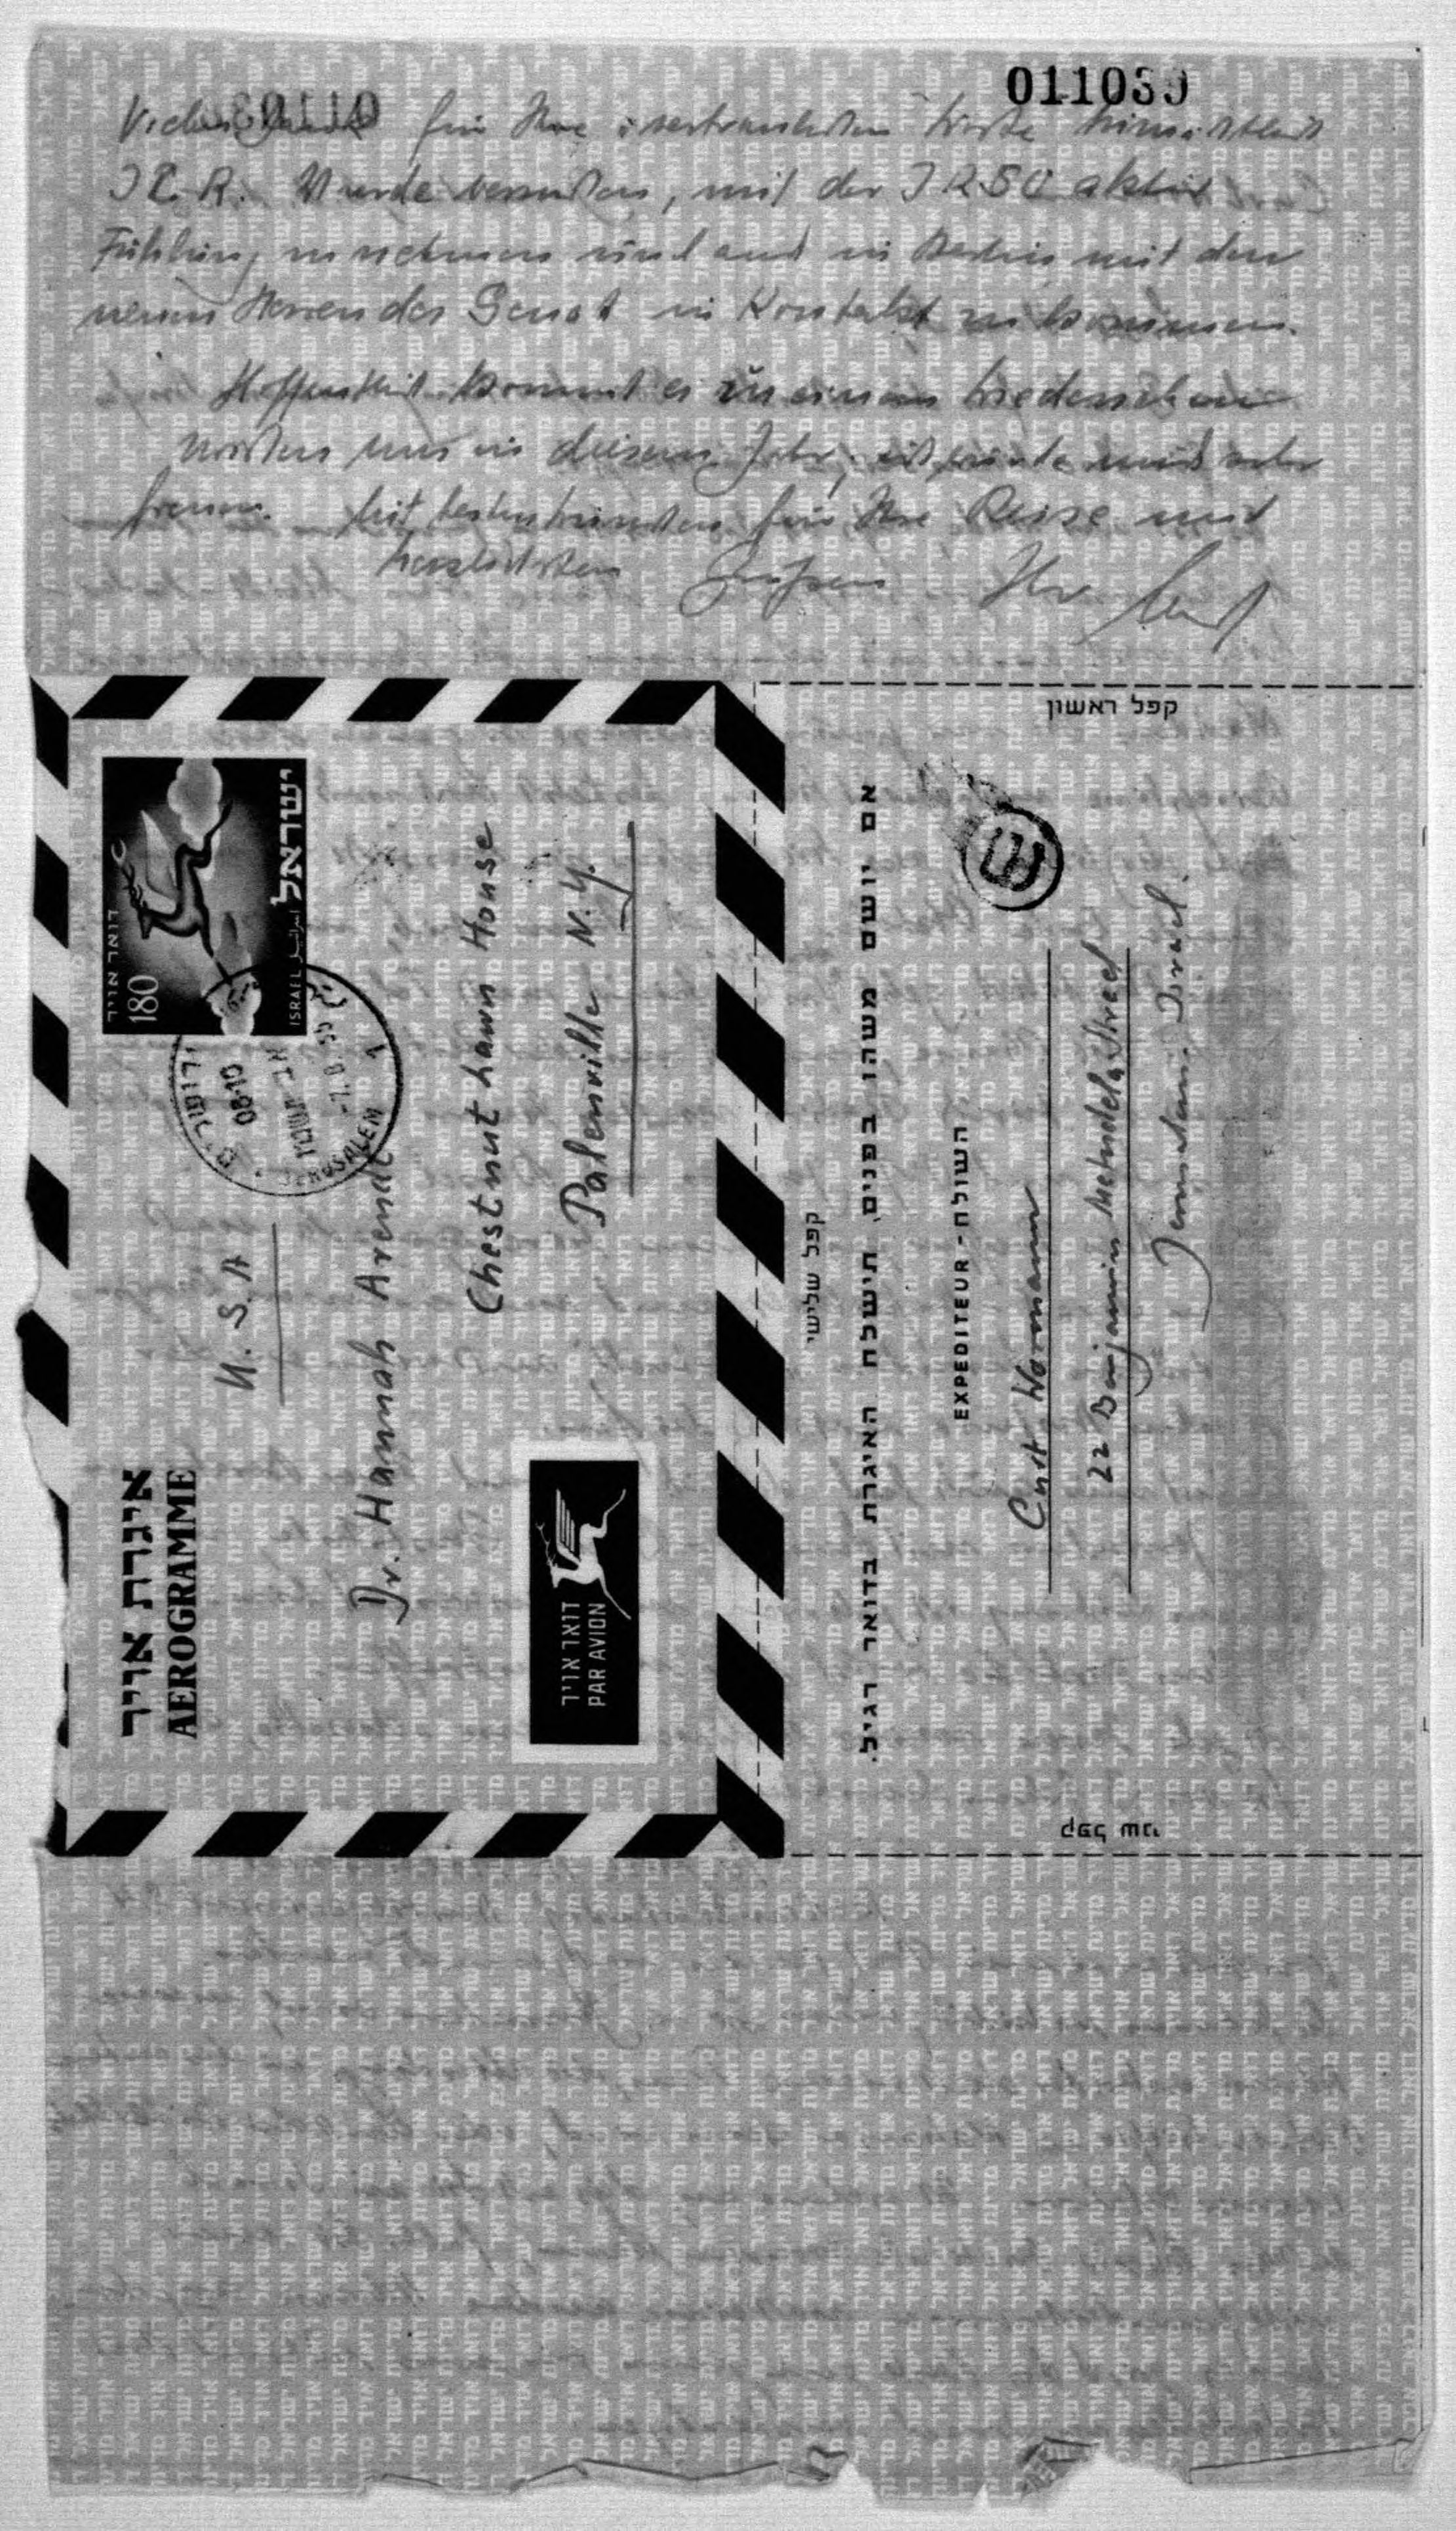 011039
Vielen Dank für Ihre vertraulichen Worte hinsichtlich
J.C.R. Werde versuchen, mit der JRSO aktiv
Fühlung zu nehmen und auch in Berlin mit den
neuen Herren des Senat in Kontakt zu kommen.
Hoffentlich kommt es zu einem Wiedersehen
zwischen uns in diesem Jahr, ich würde mich sehr
freuen. Mit besten Wünschen für Ihre Reise und
herzlichsten Grüssen Ihr Curt
קפל ראשון
איגרת אויר
AEROGRAMME
דואר אויר
180
ישראל
ISRAEL اسرائيل
ירושלים
08-10
-7.8.56
JERUSALEM
1
U.S.A
Dr. Hannah Arendt
Chestnut Lawn House
Palenville N.Y.
דואר אויר
PAR AVION
קפל שלישי
אם יושם משהו בפנים, תישלח האיגרת בדואר רגיל.
השולח - EXPEDITEUR
Curt Wormann
22 Benjamin Metudela Street
Jerusalem. Israel.
קפל שני